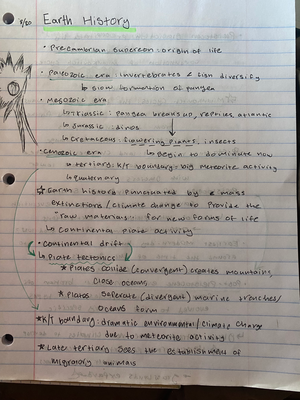 9/20 Earth History
• Precambrian supereon: origin of life
• Paleozoic era: invertebrates & fish diversify
↳ slow formation of pangea
• Mesozoic era:
↳ Triassic: pangea breaks up, reptiles, atlantic
↳ Jurassic: dinos
↳ Cretaceous: flowering plants, insects
• Cenozoic era ↳ begin to dominate now
↳ tertiary: K/T boundary - big meteorite activity
↳ quaternary
☆ Earth history punctuated by 6 mass
extinctions/climate change to provide the
"raw materials" for new forms of life
↳ continental plate activity
• Continental drift
↳ Plate tectonics
* Plates collide (convergent) creates mountains,
close oceans
* Plates seperate (divergent) marine trenches/
oceans form
* K/T boundary: dramatic environmental/climate change
due to meteorite activity
* Late tertiary sees the establishment of
migratory animals